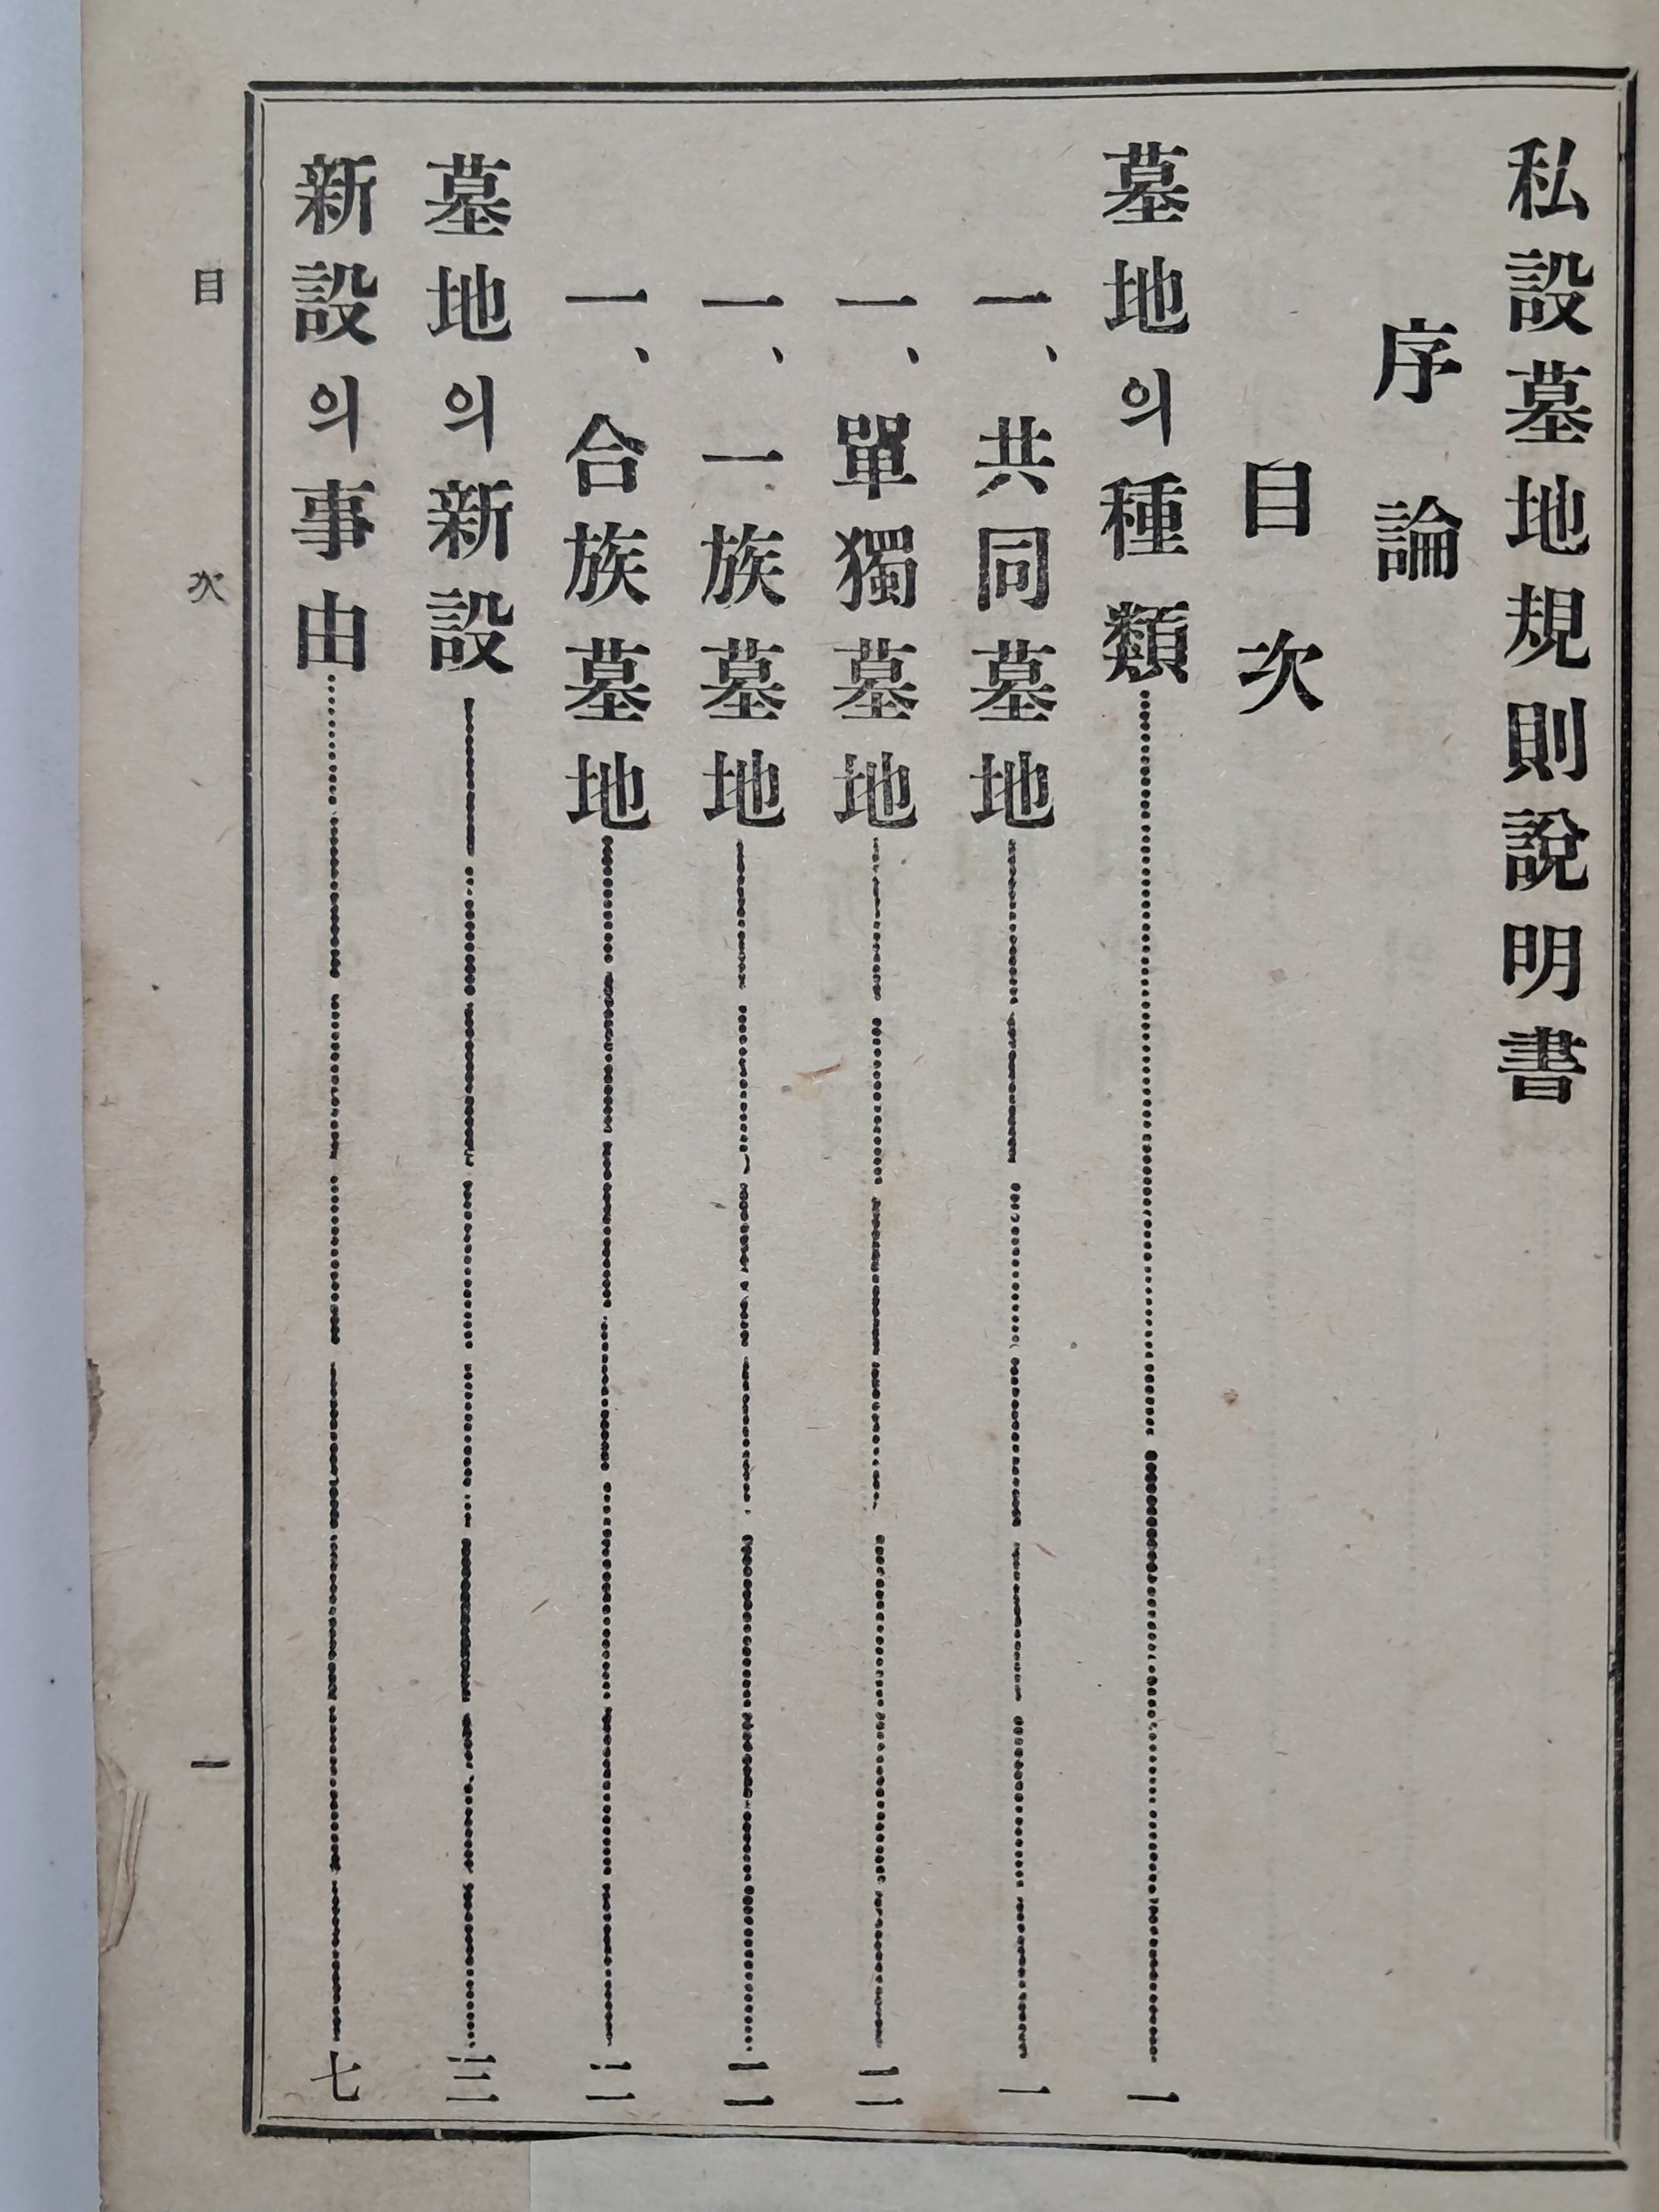 私設墓地規則說明書
序論
目次
墓地의種類……一
一、共同墓地……一
一、單獨墓地……二
一、一族墓地……二
一、合族墓地……二
墓地의新設……三
新設의事由……七
目次 一